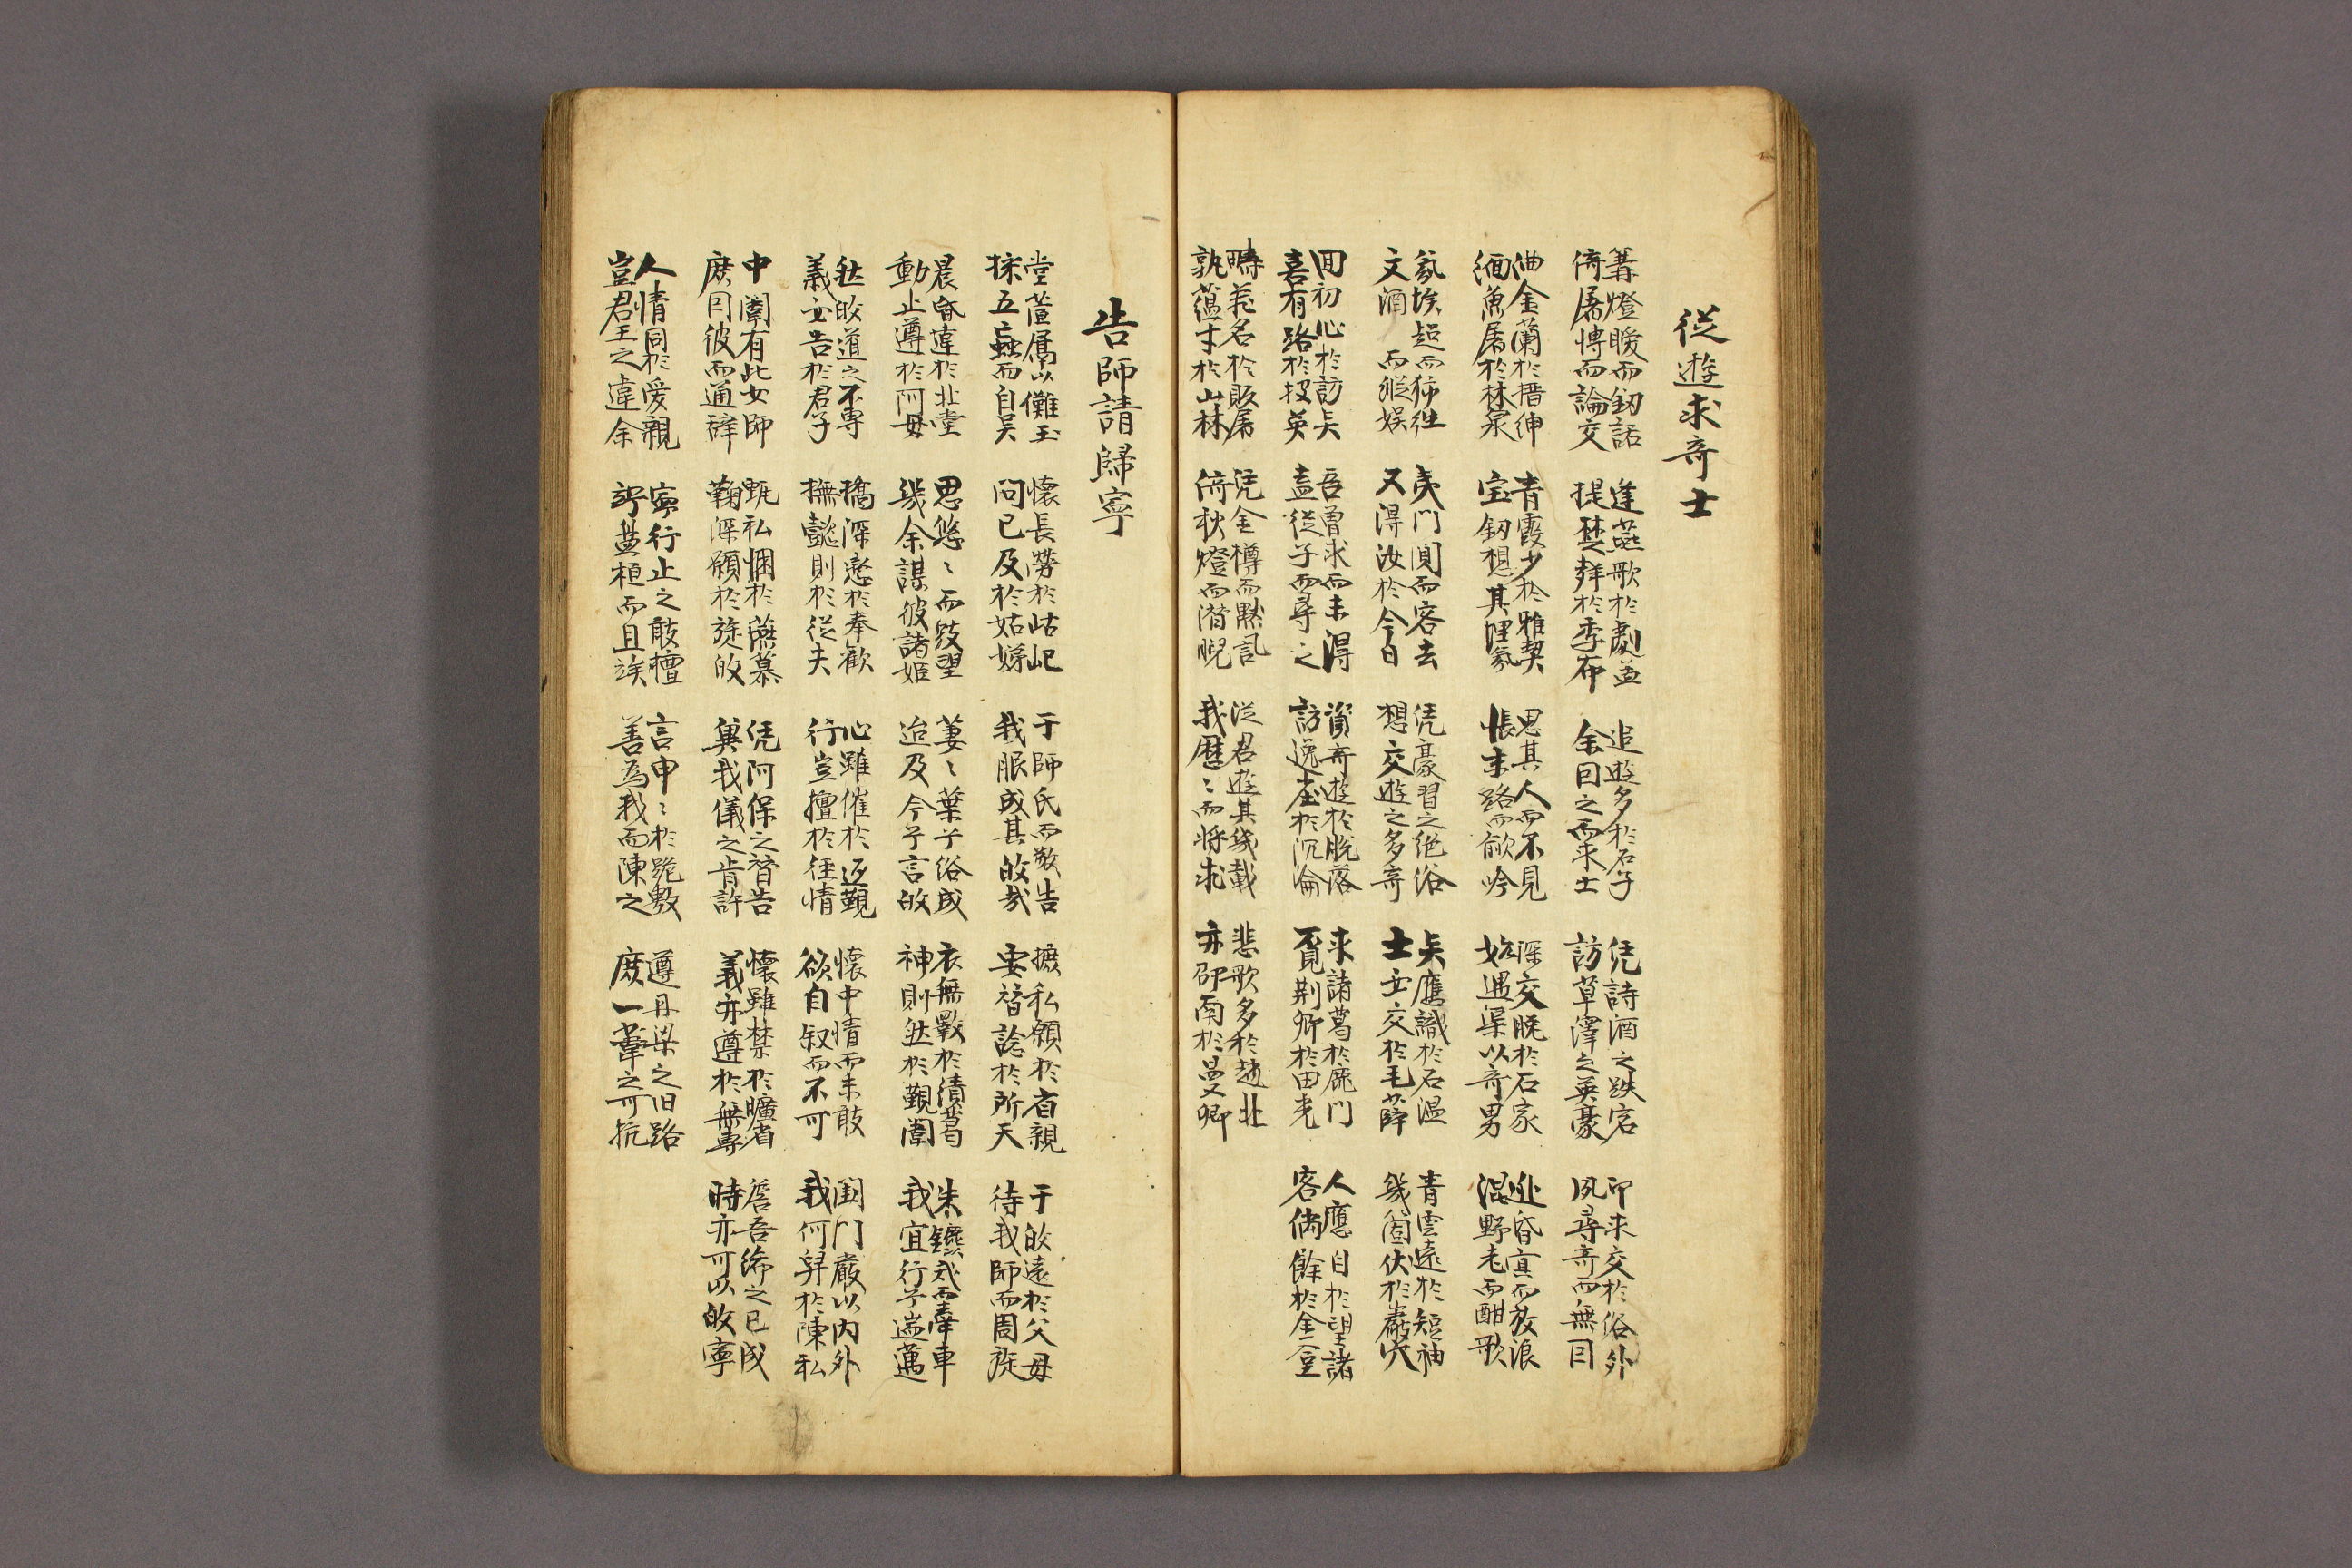 從遊求奇士
篝燈曖而釼話 逢燕歌於劇孟 追遊多於石子 凭詩酒之跌宕 求交於俗外
倚屠博而論交 提楚舞於季布 余曰之而求士 訪草澤之英豪 夙尋奇而無因
金蘭於搢紳 青霞少於雅契 思其人而不見 深交晩於石家 昏冥而放浪
緬漁屠於林泉 宝釼想其埋氣 悵末路而吟 始遇渠以奇男 混野老而酣歌
氛埃超而徃 夷門閴而客去 凭豪習之絶俗 應識於石溫 青雲遠於短袖
文酒 而縱娛 又得汝於今日 想交遊之多奇 士交於毛薛 幾箇伏於巖穴
回初心於訪 吾曾求而未得 資奇遊於脫落 求諸葛於鹿門 人應自於望諸
喜有路於投英 盍從子而尋之 訪逸於沉淪 覓荊卿於田光 客倘餘於金臺
疇義名於販屠 凭金樽而默訊 從君遊其幾載 悲歌多於趙北
孰蘊才於山林 倚秋燈而潛睨 我歷〻而將求 亦邵南於曼卿
告師請歸寧
堂萱屬以儺玉 懷長勞於岵屺 于師氏而敬告 攄私願於省親 于㱕遠於父母
採五 而自吴 問已及於姑娣 我服成其㱕哉 要替諗於所天 待我師而周旋
晨昏違於北堂 思悠〻而跂望 萋〻葉兮俗成 衣無斁於漬葛 朱鑣而奉車
動止遵於阿母 幾余謀彼諸姬 迨及今兮言㱕 神則然於覲闈 我宜行兮遄邁
然㱕道之不專 稿深戀於奉歡 心雖催於返覲 懷中情而未敢 閨門嚴以內外
義必告於君子 撫懿則於從夫 行豈擅於徑情 欲自叙而不可 我何舁於陳私
中闈有此女師 甄私悃於慕 凭阿保之替告 懷雖禁於曠省 吾之已成
庶因彼而通辭 鞠深願於旋㱕 冀我儀之肯許 義亦遵於無專 時亦可以㱕寧
人情同於愛親 寧行止之敢擅 言申〻於跪敷 遵丹梁之旧路
豈君王之違余 詝盤桓而且誒 善為我而陳之 庶一葦之可抗